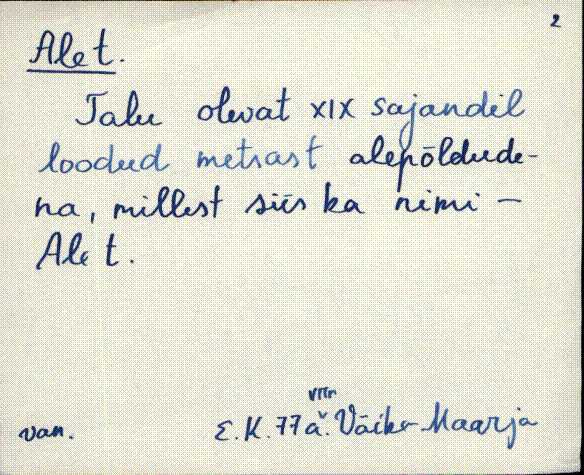 2
Ale t.
Talu olevat XIX sajandil
loodud metsast alepõldude-
na, millest siis ka nimi –
Ale t.
van. E.K. 77 a. Väike-Maarja